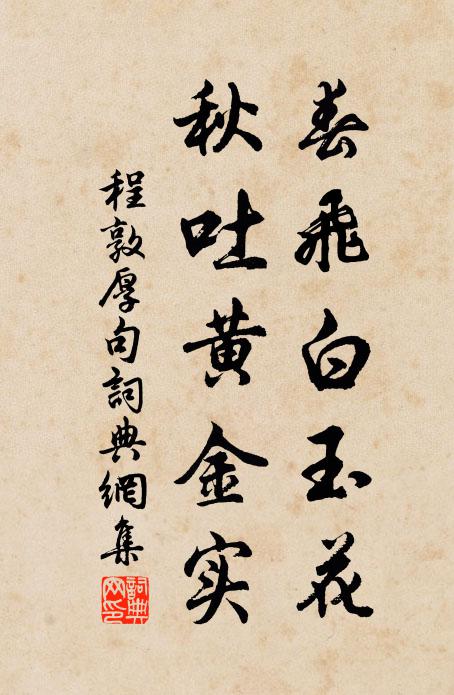 春飛白玉花
秋吐黄金实
程敦厚句詞典網集
詞典网印